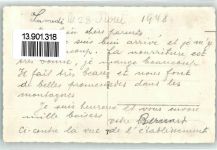 Samedi le 28 Août 1948
chers parents
13.901.318
suis bien arrivé et je m'y
la nourriture est
très bonne, je mange beaucoup
Il fait très beau et nous font
de belles promenades dans les
montagnes
Je suis heureux et vous envoie
mille baisers
Bernard
Ci-contre la vue de l'établissement